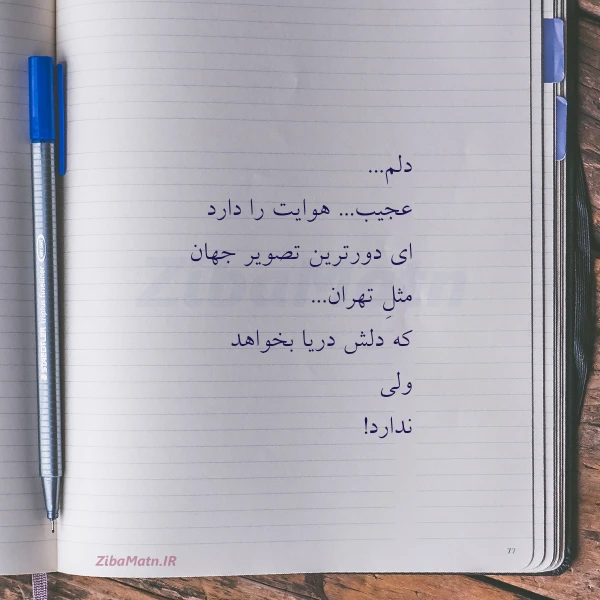 دلم...
عجیب... هوایت را دارد
ای دورترین تصویر جهان
مثلِ تهران...
که دلش دریا بخواهد
ولی
ندارد!
ZibaMatn.IR